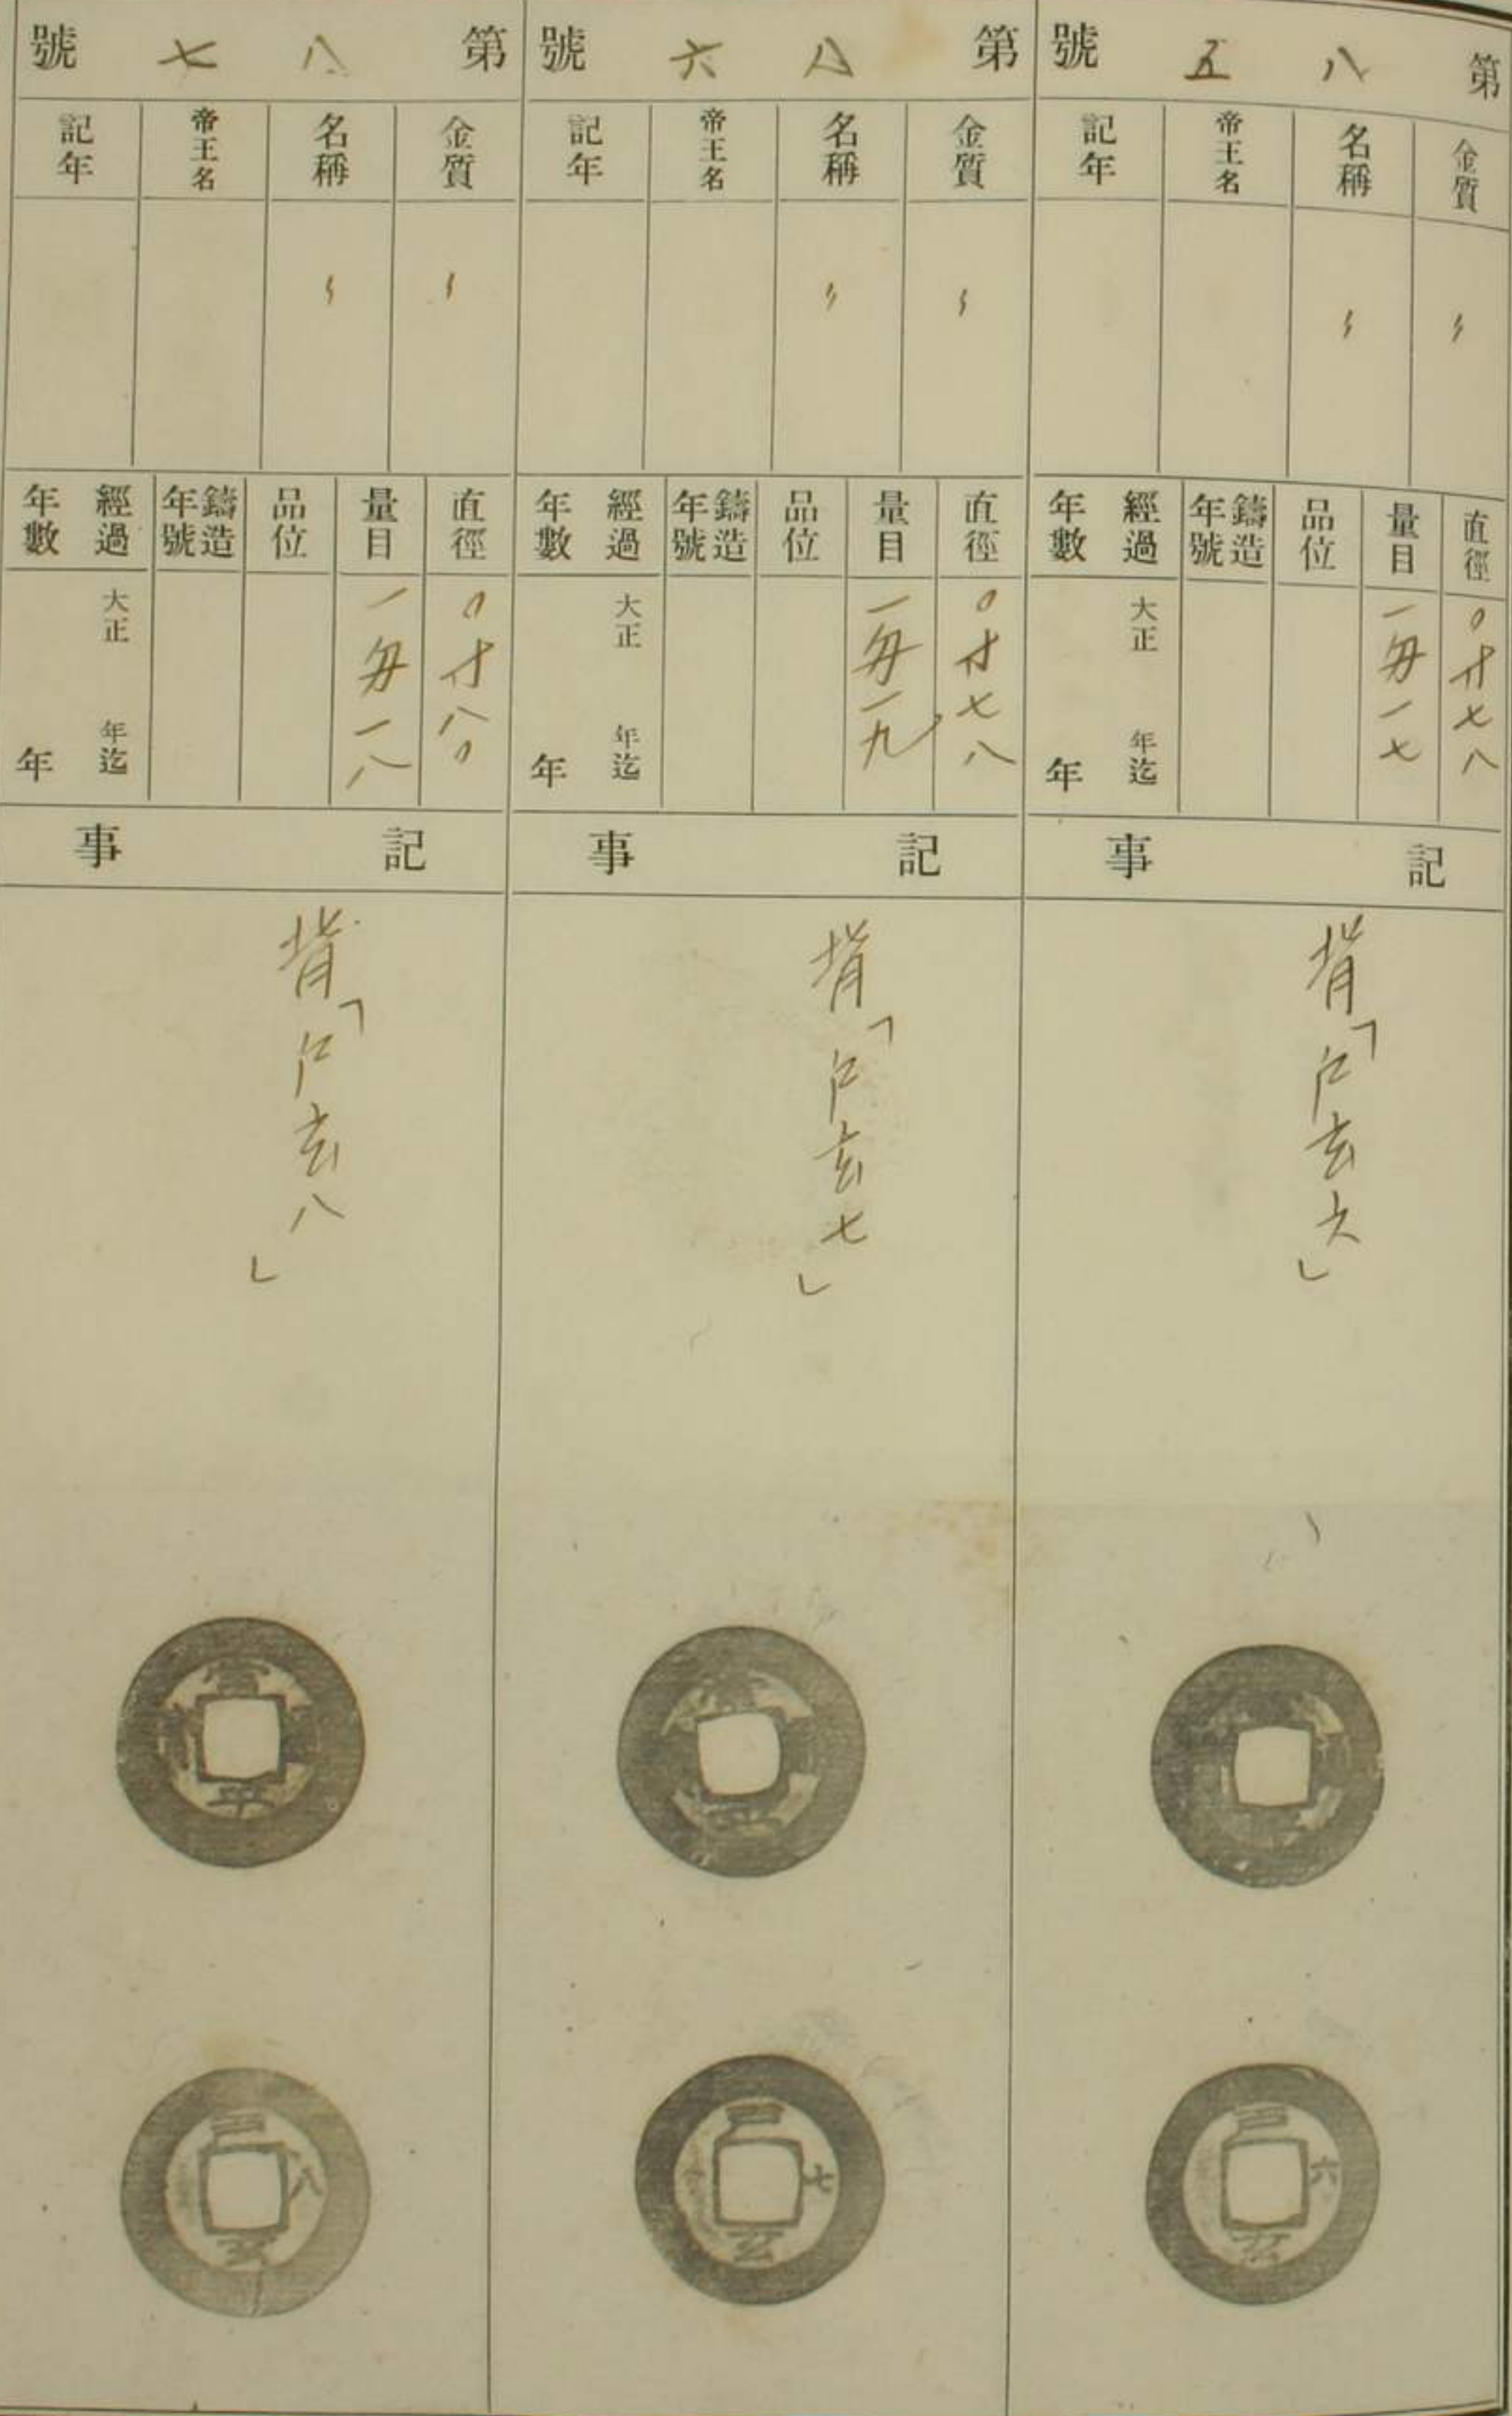 第八五號
金質
〻
名稱
〻
帝王名
記年
直徑
〇寸七八
量目
一匁一七
品位
鑄造年號
經過年數
大正 年迄
年
記事
背「戶玄六」
六
戶
玄
第八六號
金質
〻
名稱
〻
帝王名
記年
直徑
〇寸七八
量目
一匁一九
品位
鑄造年號
經過年數
大正 年迄
年
記事
背「戶玄七」
常
平
戶
七
玄
第八七號
金質
〻
名稱
〻
帝王名
記年
直徑
〇寸八〇
量目
一匁一八
品位
鑄造年號
經過年數
大正 年迄
年
記事
背「戶玄八」
常
平
戶
八
玄